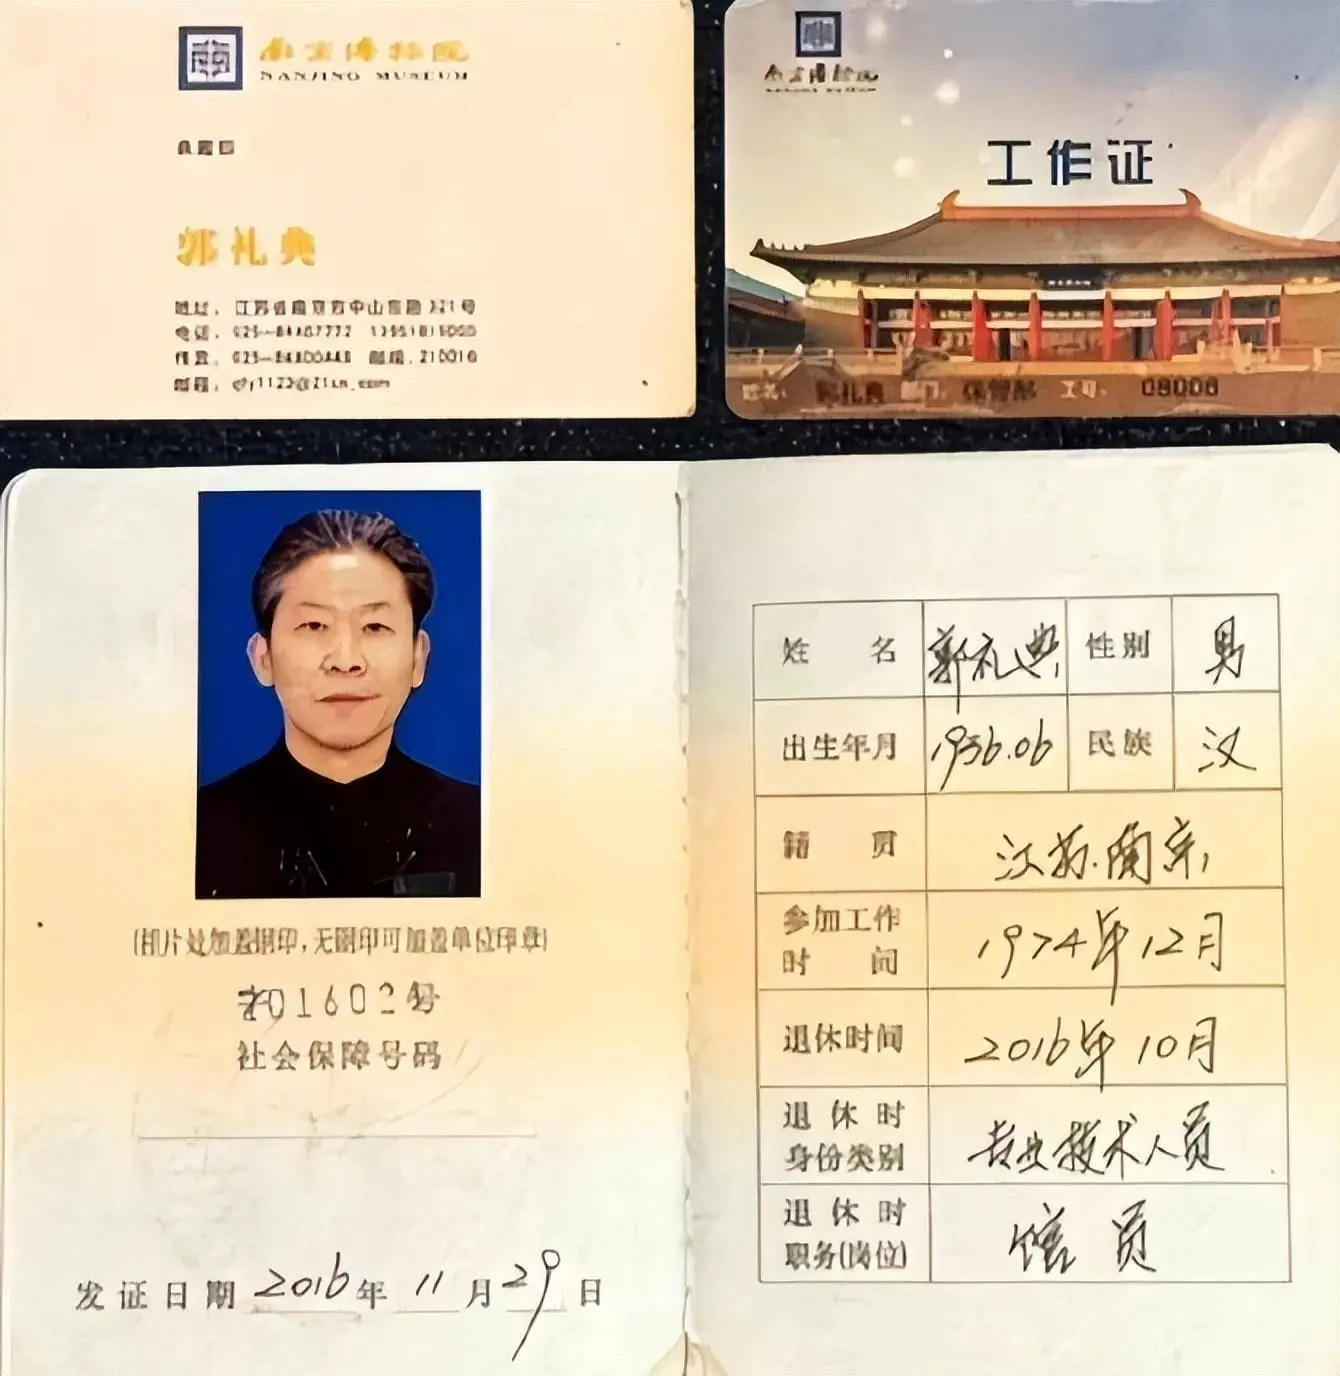 南京博物院
NANJING MUSEUM
郭礼典
地址：江苏省南京市中山东路321号
电话：
传真： 邮编：210016
邮箱：
南京博物院
工作证
姓名：郭礼典 部门：保管部 工号：08008
(相片处加盖钢印,无钢印可加盖单位印章)
201602号
社会保障号码
发证日期 2016年 11月29日
姓名 郭礼典 性别 男
出生年月 1956.06 民族 汉
籍贯 江苏.南京
参加工作时间 1974年12月
退休时间 2016年10月
退休时身份类别 专业技术人员
退休时职务(岗位) 馆员